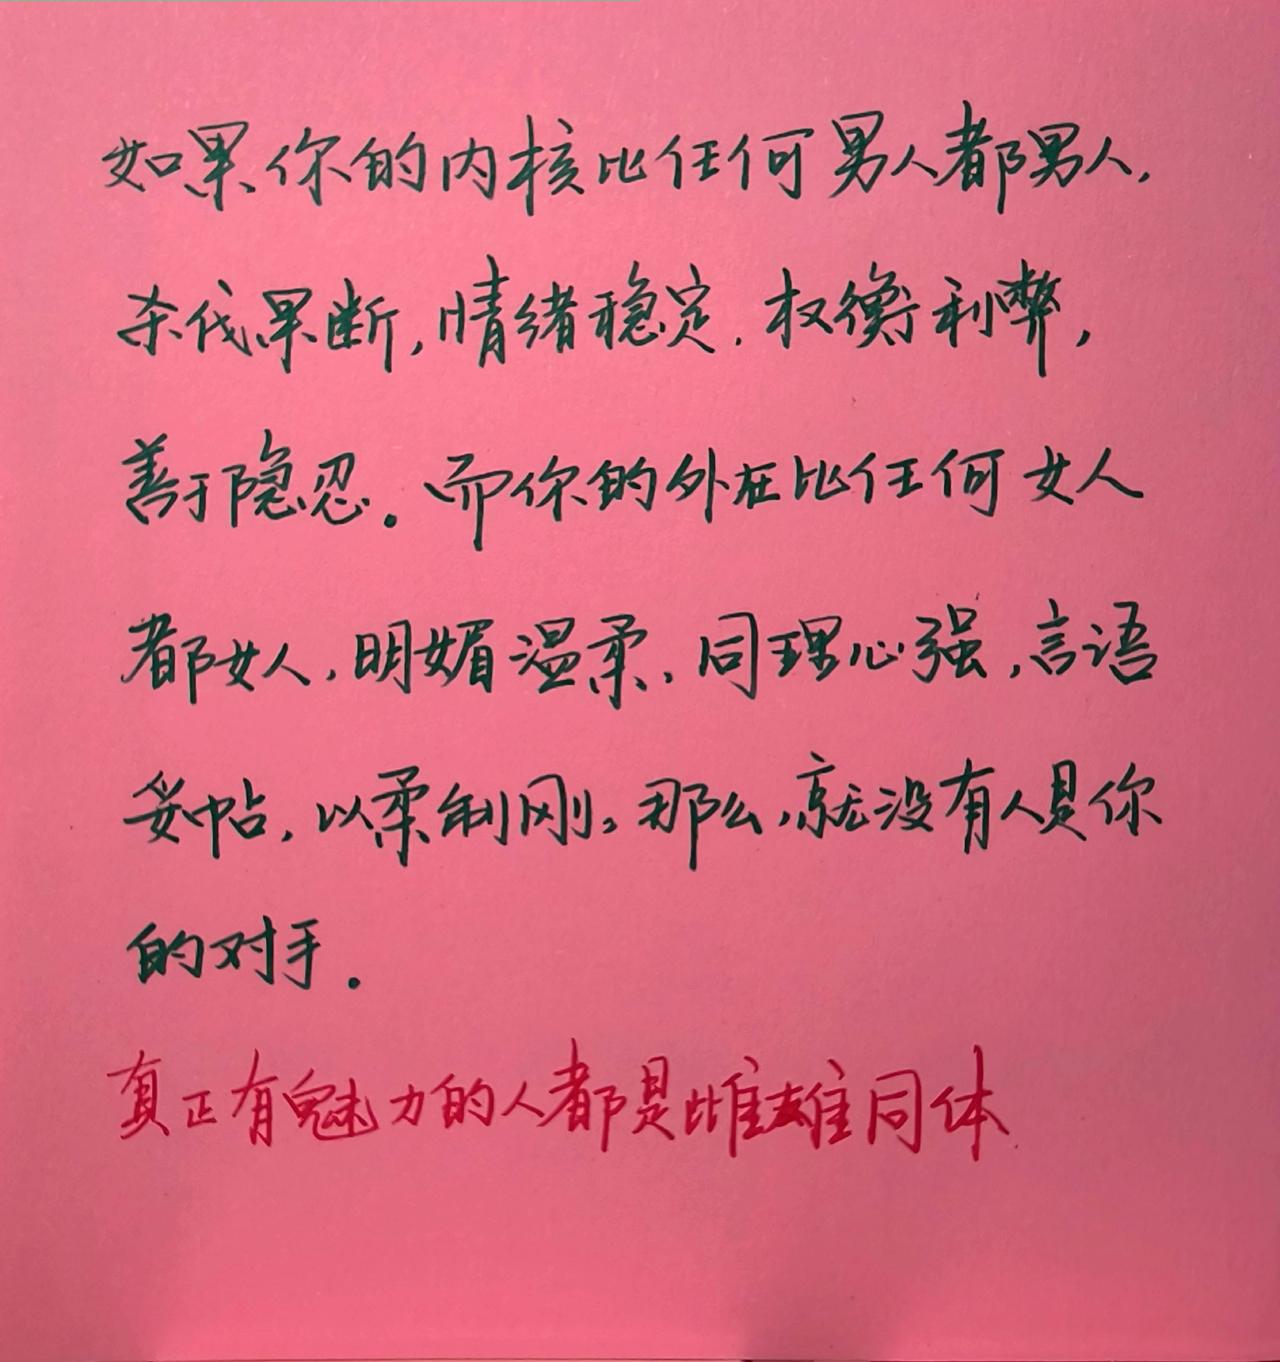 如果你的内核比任何男人都男人,
杀伐果断,情绪稳定.权衡利弊,
善于隐忍。而你的外在比任何女人
都女人,明媚温柔,同理心强,言语
妥帖,以柔制刚。那么,就没有人是你
的对手.
真正有魅力的人都是雌雄同体